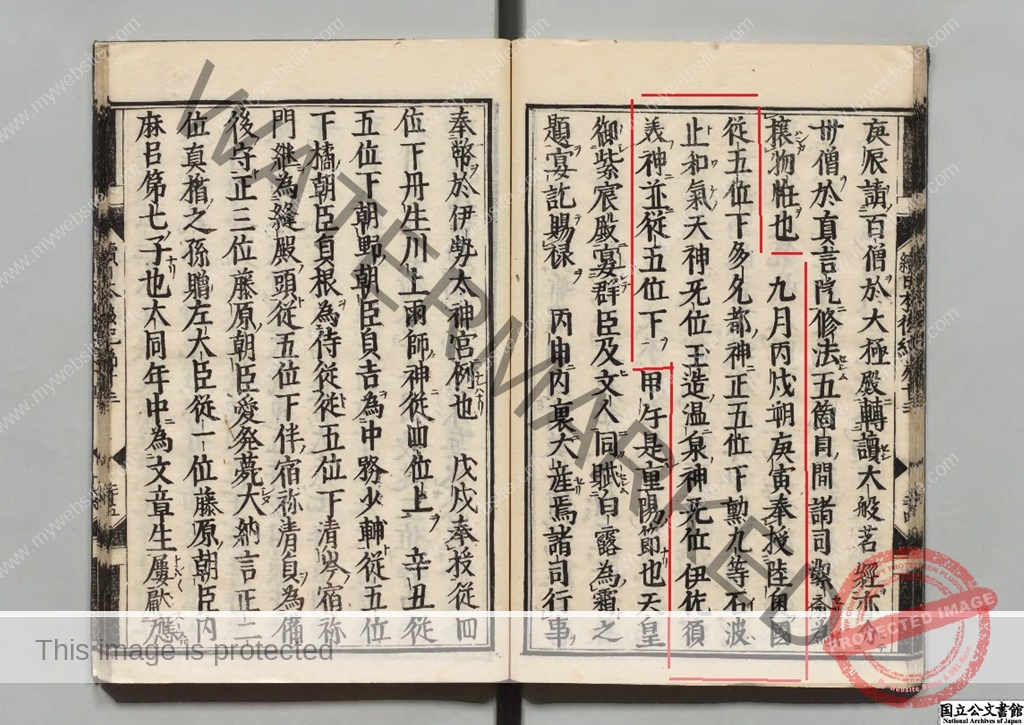 庚辰請百僧於大極殿轉讀大般若經亦
卅僧於真言院修法五箇日間諸司齋
攘物恠也 九月丙戌朔庚寅奉授陸奥國
従五位下多久都神正五位下勲九等石波
止和氣天神无位玉造温泉神无位伊佐須
義神並従五位下 甲午是重陽節也天皇
御紫宸殿宴群臣及文人同賦白露為霜之
題宴訖賜禄 丙申内裏犬産焉諸司行事
奉幣於伊勢太神宮例也 戊戌奉授従四
位下丹生川上雨師神従四位上 辛丑従
五位下朝野朝臣貞吉為中務少輔従五位
下橘朝臣貞根為侍従従五位下清岑宿祢
門継為縫殿頭従五位下伴宿祢清貞為備
後守正三位藤原朝臣愛発薨大納言正二
位真楯之孫贈左大臣従一位藤原朝臣内
麻呂第七子也大同年中為文章生屢歴
WATERMARKED
This image is protected
PROTECTED IMAGE
www.mywebsite.com
国立公文書館
National Archives of Japan